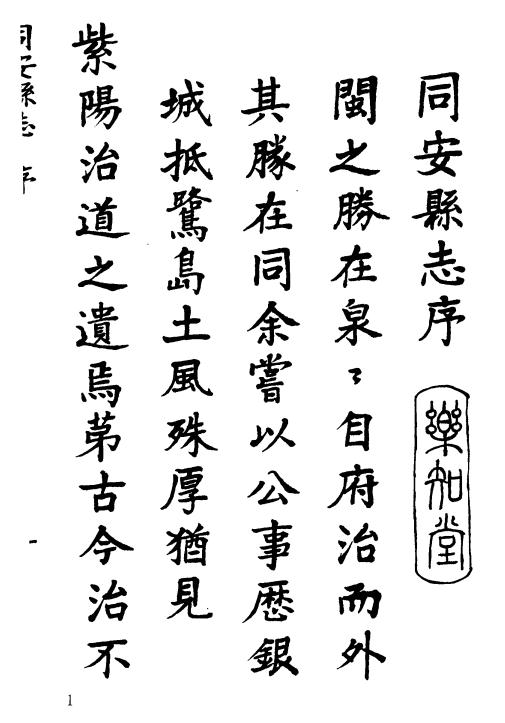 同安縣志序
樂知堂
閩之勝在泉〻自府治而外
其勝在同余嘗以公事厯銀
城抵鷺島土風殊厚猶見
紫陽治道之遺焉苐古今治不
同安縣志 序
一
1